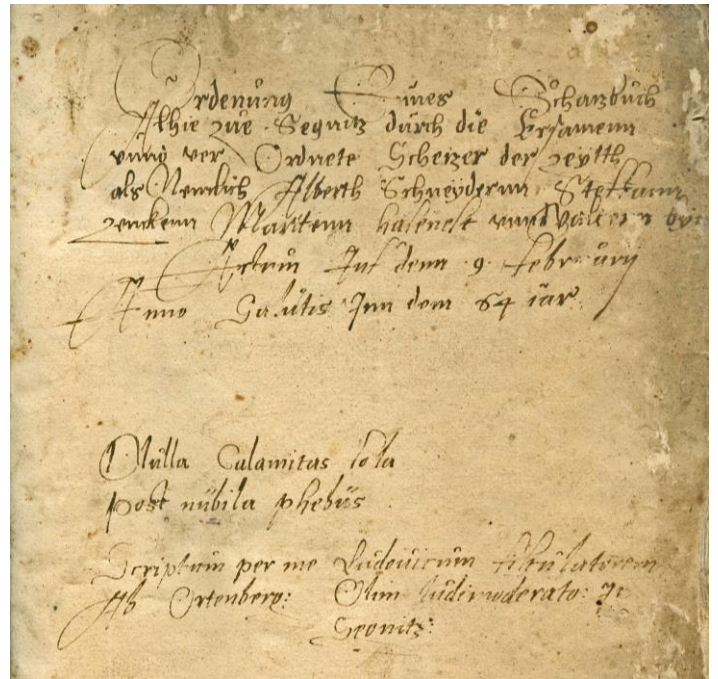 Ordenung Eines Schatzbuch
Alhie zue Segnitz durch die Ersamenn
vnnd ver Ordnete Scheizer der zeytth
als Nemlich Alberth Schneydernn Steffann
zenckenn Martenn hasenest vnnd
Actum Auf denn 9 februarij
Anno Salutis Inn dem 64 iar
Nulla Calamitas sola
post nübila phebüs
Scriptum per me Ludouicum
Ab Ortenberg: Olim ludimoderato:
Segnitz: